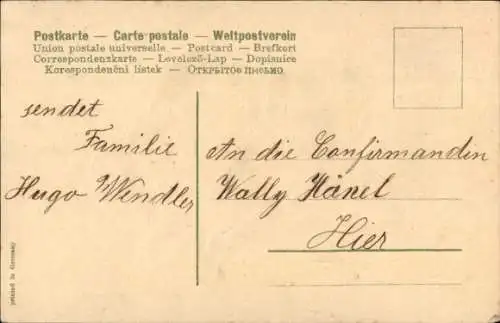 Postkarte — Carte postale — Weltpostverein
Union postale universelle — Postcard — Brefkort
Correspondenzkarte — Levelező-Lap — Dopisnice
Korespondenční lístek — Открытое письмо.
sendet
Familie
Hugo Wendler
An die Confirmanden
Wally Hänel
Hier
printed in Germany